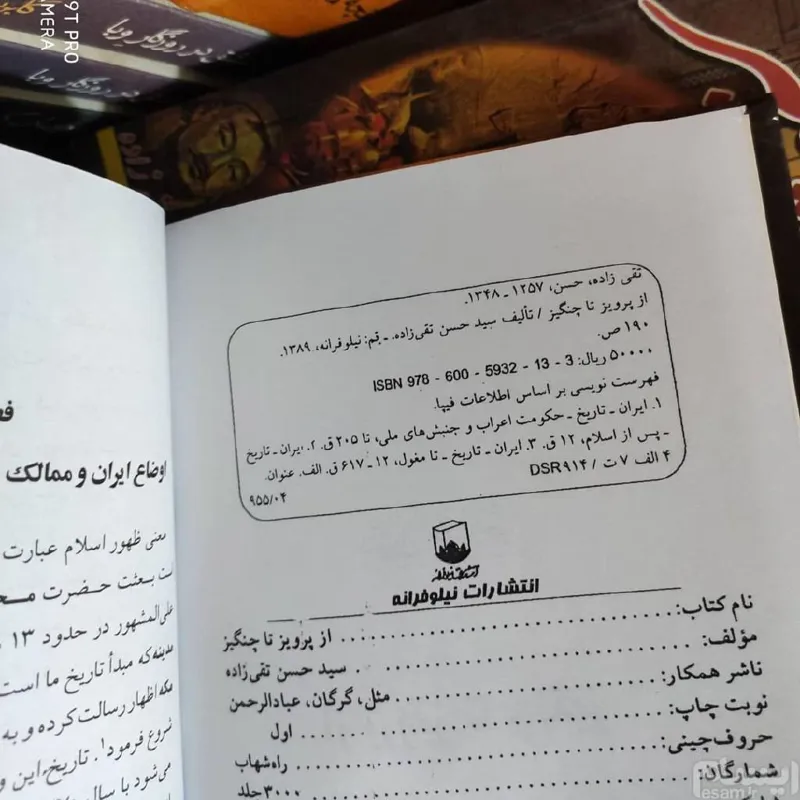 9T PRO
CAMERA
در روزگار وبا
در روزگار وبا
زاده
تقی زاده، حسن، ۱۲۵۷ ـ ۱۳۴۸.
از پرویز تا چنگیز / تألیف سید حسن تقی‌زاده. ـ قم: نیلوفرانه، ۱۳۸۹.
۱۹۰ ص.
۵۰۰۰۰ ریال: ISBN 978 - 600 - 5932 - 13 - 3
فهرست نویسی بر اساس اطلاعات فیپا.
۱. ایران ـ تاریخ ـ حکومت اعراب و جنبش‌های ملی، تا ۲۰۵ ق. ۲. ایران ـ تاریخ
ـ پس از اسلام، ۱۲ ق. ۳. ایران ـ تاریخ ـ تا مغول، ۱۲ ـ ۶۱۷ ق. الف. عنوان.
۴ الف ۷ ت / DSR ۹۱۴
۹۵۵/۰۴
انتشارات نیلوفرانه
نام کتاب: از پرویز تا چنگیز
مؤلف: سید حسن تقی‌زاده
ناشر همکار: مثل، گرگان، عبادالرحمن
نوبت چاپ: اول
حروف‌چینی: راه‌شهاب
شمارگان: ۳۰۰۰ جلد
اوضاع ایران و ممالک
معنی ظهور اسلام عبارت
است بعثت حضرت
علی‌المشهور در حدود ۱۳
مدینه که مبدأ تاریخ ما است
مکه اظهار رسالت کرده و به
شروع فرمود۱. تاریخ این و
می‌شود با سال
esam.ir